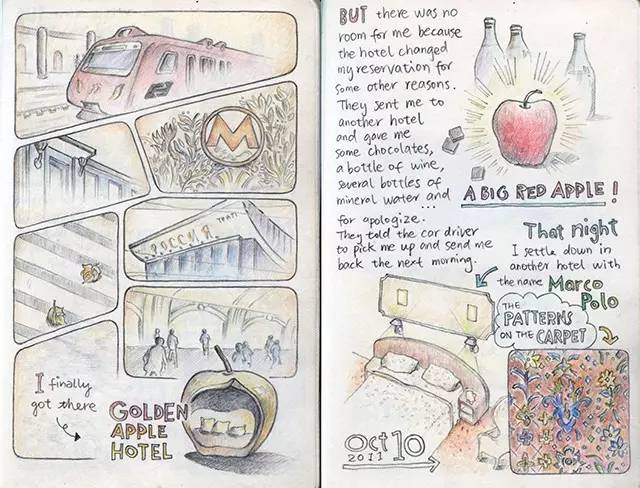 M
РОССИЯ
ТЕАТР
I finally
got there
GOLDEN
APPLE
HOTEL
BUT there was no
room for me because
the hotel changed
my reservation for
some other reasons.
They sent me to
another hotel
and gave me
some chocolates,
a bottle of wine,
several bottles of
mineral water and
...
for apologize.
They told the car driver
to pick me up and send me
back the next morning.
A BIG RED APPLE!
That night
I settle down in
another hotel with
the name Marco
Polo
THE
PATTERNS
ON THE CARPET
Oct 10
2011